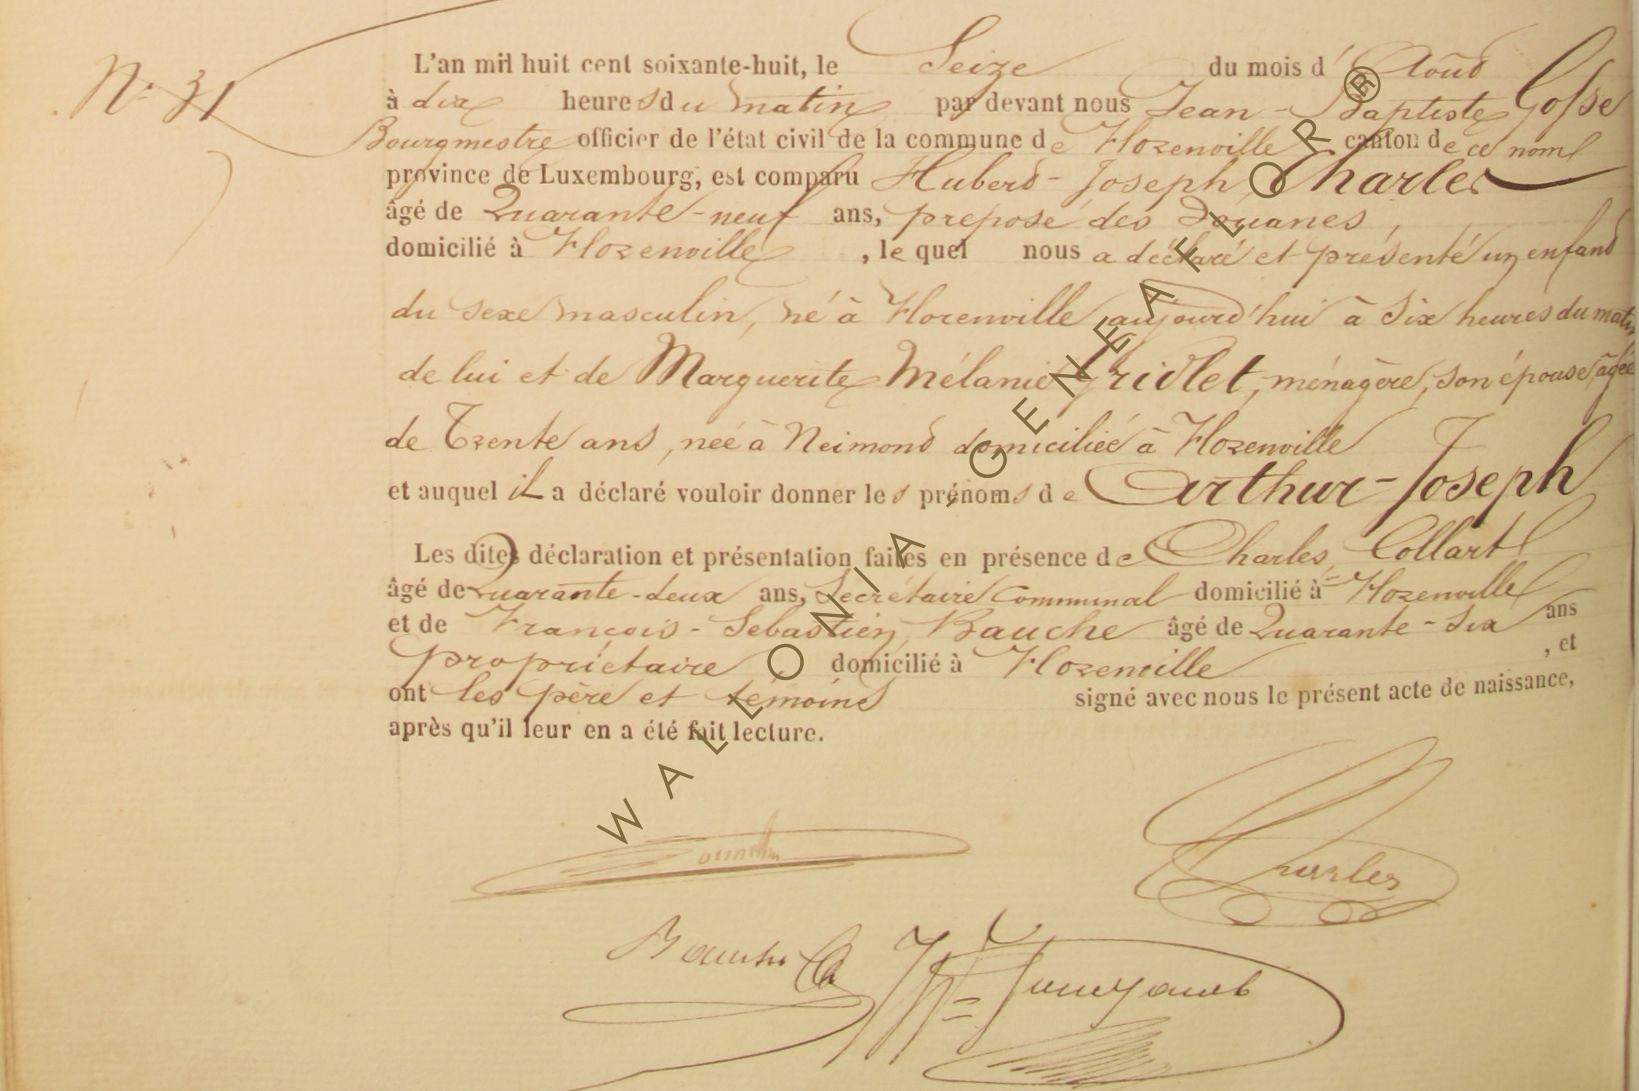 N° 31
L'an mil huit cent soixante-huit, le Seize du mois d' Août
à dix heures du matin par devant nous Jean-Baptiste Gofse
Bourgmestre officier de l'état civil de la commune de Florenville canton de ce nom
province de Luxembourg, est comparu Hubert-Joseph Charles
âgé de Quarante-neuf ans, préposé des Douanes,
domicilié à Florenville, le quel nous a déclaré et présenté un enfant
du sexe masculin, né à Florenville aujourd'hui à Six heures du matin
de lui et de Marguerite Mélanie, ménagère, son épouse, âgée
de Trente ans, née à Neimond domiciliée à Florenville
et auquel il a déclaré vouloir donner les prénoms de Arthur-Joseph
Les dites déclaration et présentation faites en présence de Charles Collart
âgé de Quarante-deux ans, Secrétaire Communal domicilié à Florenville
et de François-Sebastien Bauche âgé de Quarante-six ans
propriétaire domicilié à Florenville, et
ont les père et témoins signé avec nous le présent acte de naissance,
après qu'il leur en a été fait lecture.
Charles
Bauche
WALLONIA.GENEAFLOR®